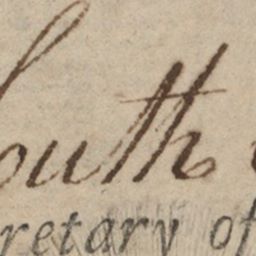 outh
retary of